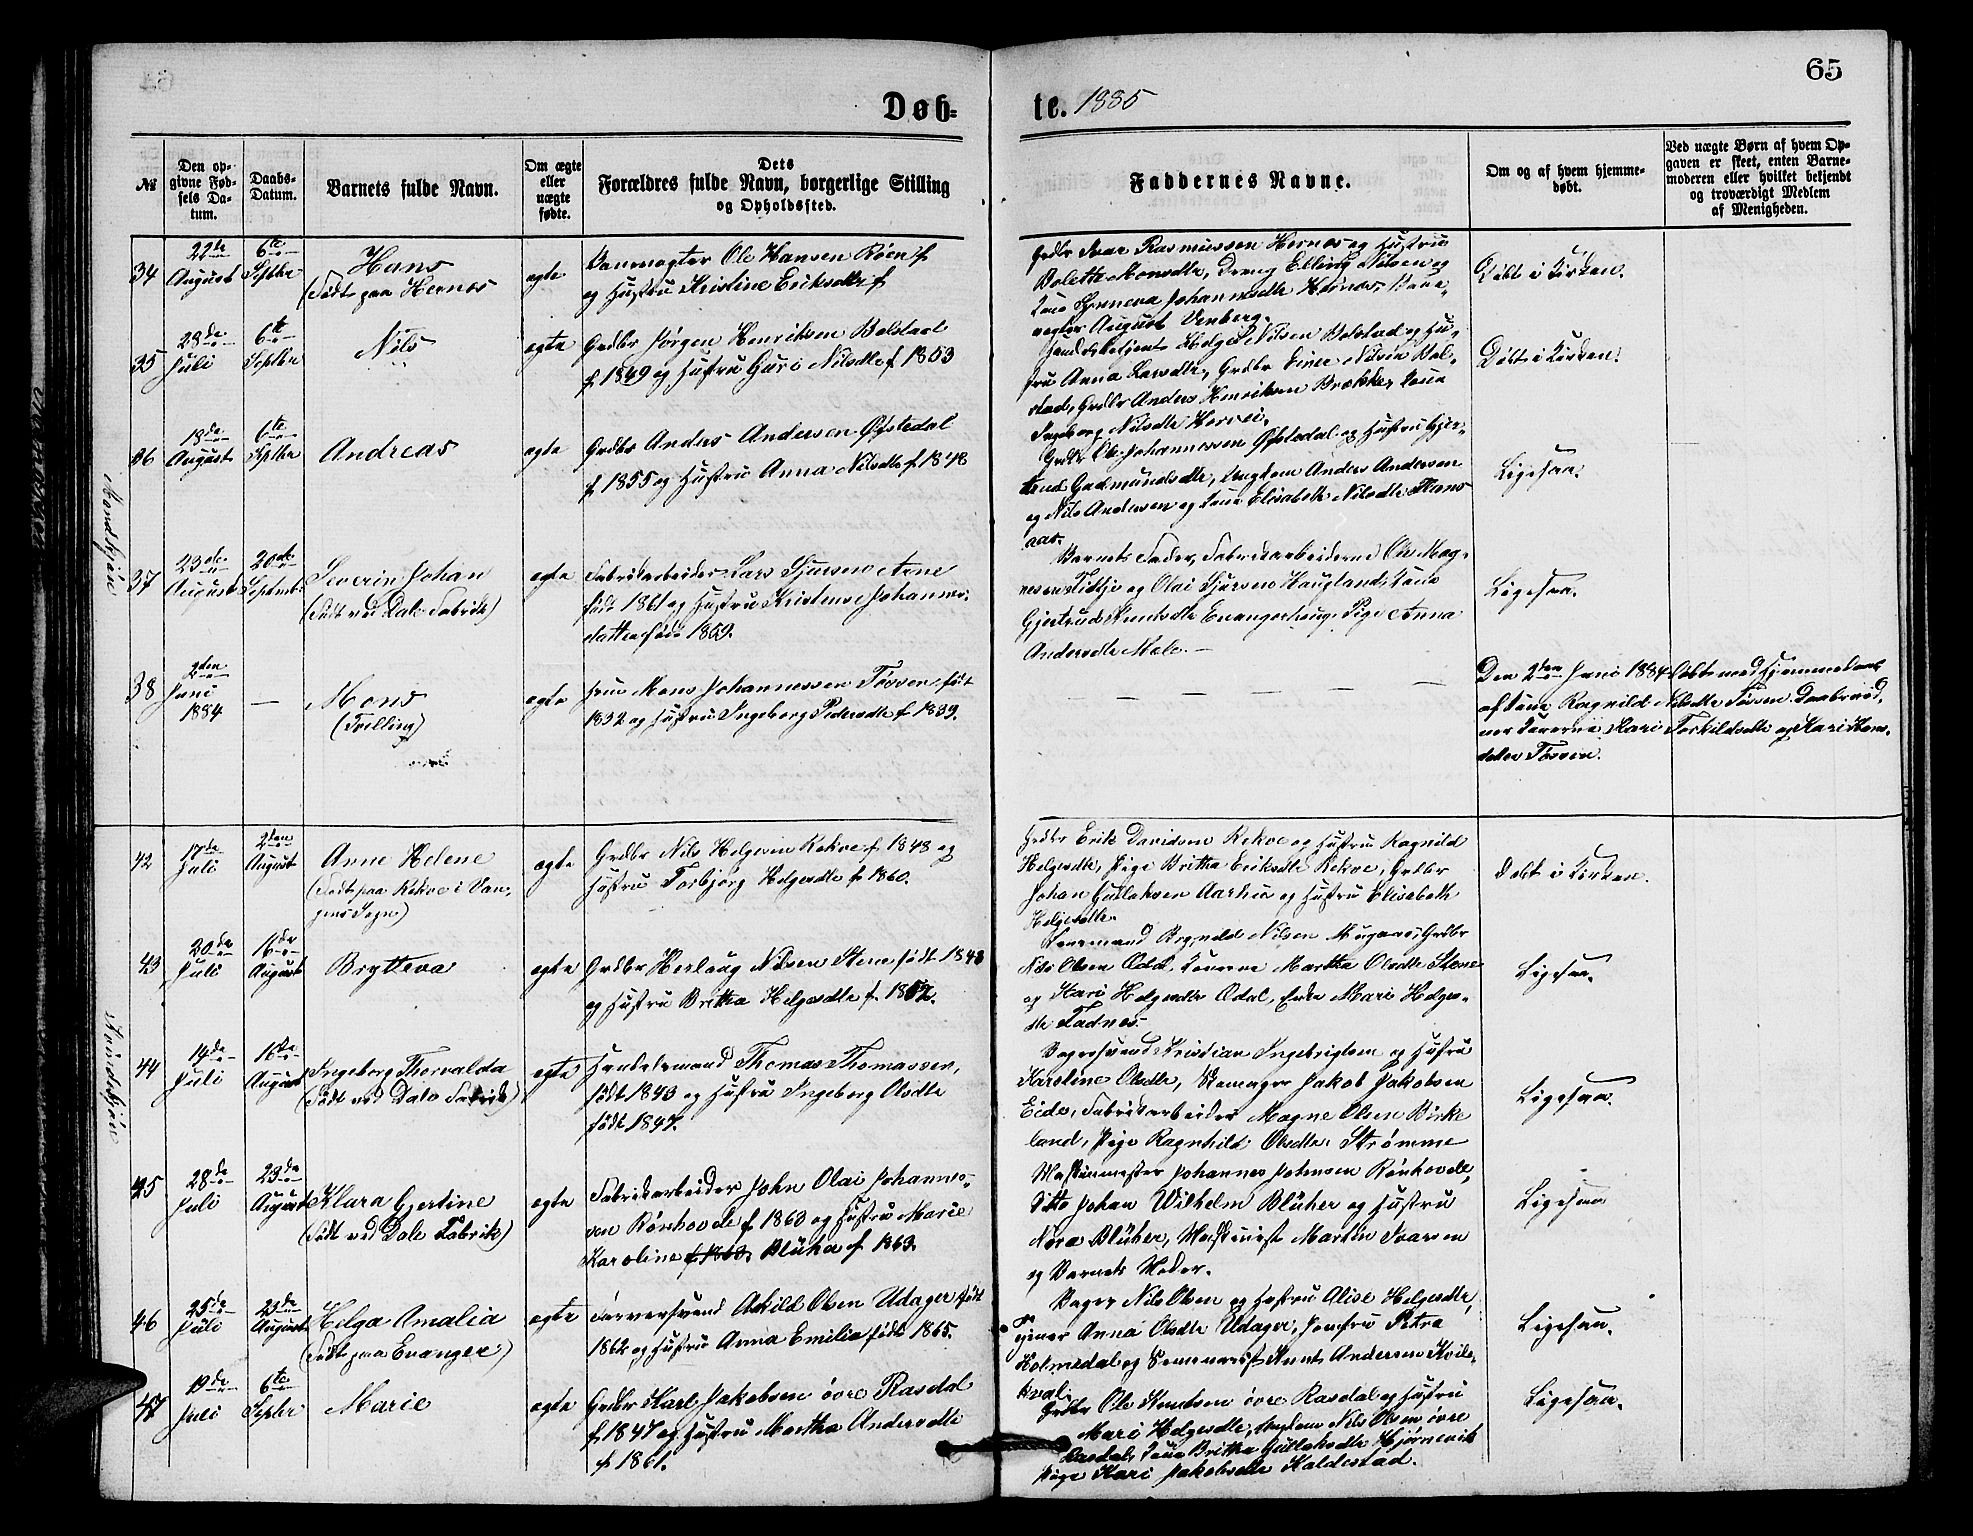 65
Døb=
te. 1885
№
Den op-
givne Fød-
sels Da-
tum.
Daabs-
Datum.
Barnets fulde Navn.
Om ægte
eller
uægte
fødte.
Dets
Forældres fulde Navn, borgerlige Stilling
og Opholdssted.
Faddernes Navne.
Om og af hvem hjemme-
døbt.
Ved uægte Børn af hvem Op-
gaven er skeet, enten Barne-
moderen eller hvilket bekjendt
og troværdigt Medlem
af Menigheden.
Mandkjøn
34
22de
August
6te
Septbr
Hans
(Født paa Hernes
egte
Banevogter Ole Hansen Røen f
og Hustru Kristine Eriksdtr f
Grdbr Ivar Rasmussen Hernes og Hustru
Bolette Monsdtr, Dreng Elling Nilsen og
Johannesdtr Hernes, Bane-
vogter August Venberg.
Døbt i Kirken.
35
28de
Juli
6te
Septbr
Nils
egte
Grdbr Jørgen Henriksen Bolstad
f 1849 og Hustru Guro Nilsdtr f 1853
Handelsbetjent Helge Nilsen Bolstad og Hu-
stru Anna Larsdtr, Grdbr Einer Nilsen Bol-
stad, Grdbr Anders Henriksen Brække, Kone
Ingeborg Nilsdtr Horvei.
Døbt i Kirken.
36
18de
August
6te
Septbr
Andreas
egte
Grdbr Anders Andersen Øfstedal
f 1855 og Hustru Anna Nilsdtr f 1848
Grdbr Ole Johannessen Øfstedal og Hustru Gjer-
trud Gudmundsdtr, Ungkom Anders Andersen
og Nils Andersen og Kone Elisabeth Nilsdtr Mons
aas.
Ligesaa.
37
23de
August
20de
Septemb.
Severin Johan
(Født ved Dale Fabrik)
egte
Fabrikarbeider Lars Sjursen Arne
født 1861 og Hustru Kristense Johannes-
datter født 1859.
Barnets Fader, Fabrikarbeiderne Ole Mag-
nesen Tidtje og Olai Sjursen Haugland, Kone
Gjertrud Knutsdtr Evangerhaug, Pige Anna
Andersdtr Male. —
Ligesaa.
38
2den
Juni
1884
—
Mons
(Tvilling)
egte
Huus Mons Johannessen Tøssen, født
1832 og Hustru Ingeborg Pedersdtr f 1839.
— — — — —
Den 2den Juni 1884 døbte med Hjemmedaab
af Kone Ragnild Nilsdtr Tøssen. Daabsvid-
ner Konerne Mari Torkildsdtr og Kari Mons-
datter Tøssen.
Kvindekjøn
42
17de
Juli
2den
August
Anne Helene
(Født paa Rekve i Van-
gens Sogn)
egte
Grdbr Nils Helgesen Rekve f 1848 og
Hustru Torbjørg Helgesdtr f 1860.
Grdbr Erik Davidsen Rekve og Hustru Ragnild
Helgesdtr, Pige Britha Eriksdtr Rekve, Grdbr
Johan Gullaksen Aarhus og Hustru Elisabeth
Helgesdtr.
Døbt i Kirken.
43
20de
Juli
16de
August
Brytteva
egte
Grdbr Herlaug Nilsen Steine født 1843
og Hustru Britha Helgesdtr f. 1852.
Lensmand Brynild Nilsen Mugaas, Grdbr
Nils Olsen Odd, Konerne Martha Olsdtr Stene
og Kari Helgesdtr Ødal, Enke Mari Helges-
dtr Fadnes.
Ligesaa.
44
14de
Juli
16de
August
Ingeborg Thorvalda
(Født ved Dale Fabrik)
egte
Handelsmand Thomas Thomassen,
født 1843 og Hustru Ingeborg Olsdtr
født 1847.
Bagersvend Kristian Ingebrigtsen og Hustru
Karoline Olsdtr, Skomager Jakob Jakobsen
Eide, Fabrikarbeider Magne Olsen Birke
land, Pige Ragnhild Olsdtr Strømme
Ligesaa.
45
28de
Juli
23de
August
Klara Gjertine
(Født ved Dale Fabrik)
egte
Fabrikarbeider John Olai Johannes-
sen Rønhovde f 1863 og Hustru Marie
Karoline f 1863. Blüher f 1863.
Maskinmester Johannes Johnsen Rønhovde,
Ditto Johan Wilhelm Blüher og Hustru
Nora Blüher, Maskinist Martin Ivarsen
og Barnets Moder.
Ligesaa
46
25de
Juli
23de
August
Helga Amalia
(Født paa Evanger)
egte
Farversvend Askild Olsen Udager født
1862 og Hustru Anna Emilia født 1865.
Bager Nils Olsen og Hustru Alise Helgesdtr,
Tjener Anna Olsdtr Udager, Jomfru Petra
Holmedal og Seminarist Knut Andersen Kvile-
kval.
Ligesaa.
47
19de
Juli
6te
Septbr
Marie
egte
Grdbr Karl Jakobsen øvre Rasdal
f 1847 og Hustru Martha Andersdtr
f 1861.
Grdbr Ole Knutsen øvre Rasdal og Hustru
Mari Helgesdtr, Ungkom Nils Olsen øvre
Rasdal, Kone Britha Gullaksdtr Hjørnevik
Pige Kari Jakobsdtr Kaldestad.
Ligesaa.